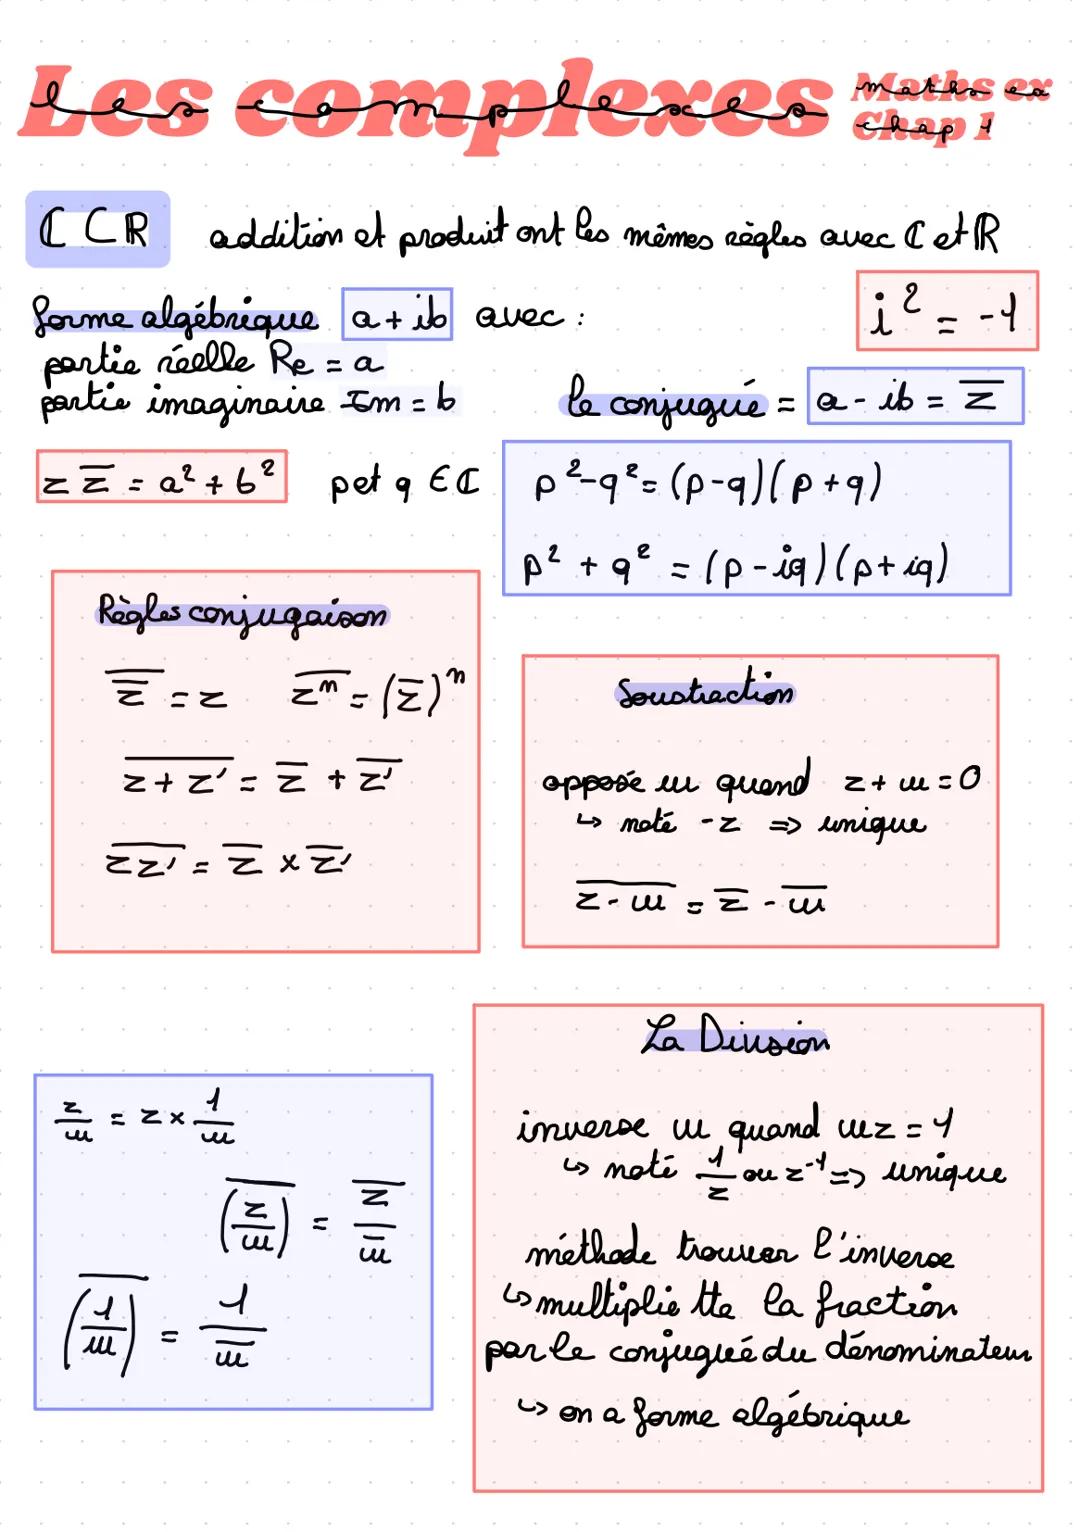 Les complexes
Maths ex
Chap 1
ℂ ⊂ ℝ
addition et produit ont les mêmes règles avec ℂ et ℝ
forme algébrique a + ib avec :
i² = -1
partie réelle Re = a
partie imaginaire Im = b
le conjugué = a - ib = z̅
z z̅ = a² + b²
p et q ∈ ℂ
p² - q² = (p - q)(p + q)
p² + q² = (p - iq)(p + iq)
Règles conjugaison
z̅̅ = z
\overline{zⁿ} = (z̅)ⁿ
\overline{z + z'} = z̅ + \overline{z'}
\overline{zz'} = z̅ × \overline{z'}
Soustraction
opposé w quand z + w = 0
↳ noté -z => unique
\overline{z - w} = z̅ - w̅
z/w = z × 1/w
\overline{(z/w)} = z̅/w̅
\overline{(1/w)} = 1/w̅
La Division
inverse w quand wz = 1
↳ noté 1/z ou z⁻¹ => unique
méthode trouver l'inverse
↳ multiplie tte la fraction
par le conjugué du dénominateur
↳ on a forme algébrique